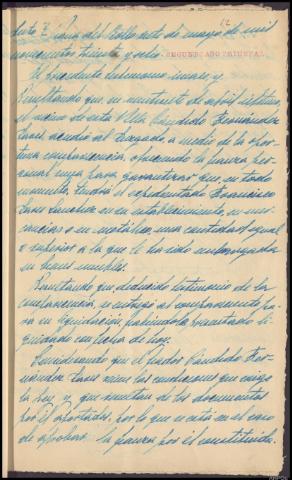 12
SEGUNDO AÑO TRIUNFAL
Auto. = Pina del Rollo siete de mayo de mil
novecientos treinta y ocho
El precedente testimonio únase, y
Resultando que en veintisiete de abril último,
el vecino de esta Villa Cándido Fernández
acudió al Juzgado, a medio de la opor-
tuna comparecencia, ofreciendo la fianza per-
sonal suya para garantizar que, en todo
momento, tendrá el expedientado Francisco
Sánchez en su establecimiento, en mer-
cancías o en metálico, una cantidad igual
o superior a la que le ha sido embargada
en bienes muebles.
Resultando que, deducido testimonio de la
comparecencia, se entregó al compareciente pa-
ra su liquidación, habiéndolo presentado li-
quidado con fecha de hoy.
Considerando que el fiador Cándido Fer-
nández reúne las condiciones que exige
la ley, y que resultan de los documentos
por él aportados, por lo que se está en el caso
de aprobar la fianza por él constituida.